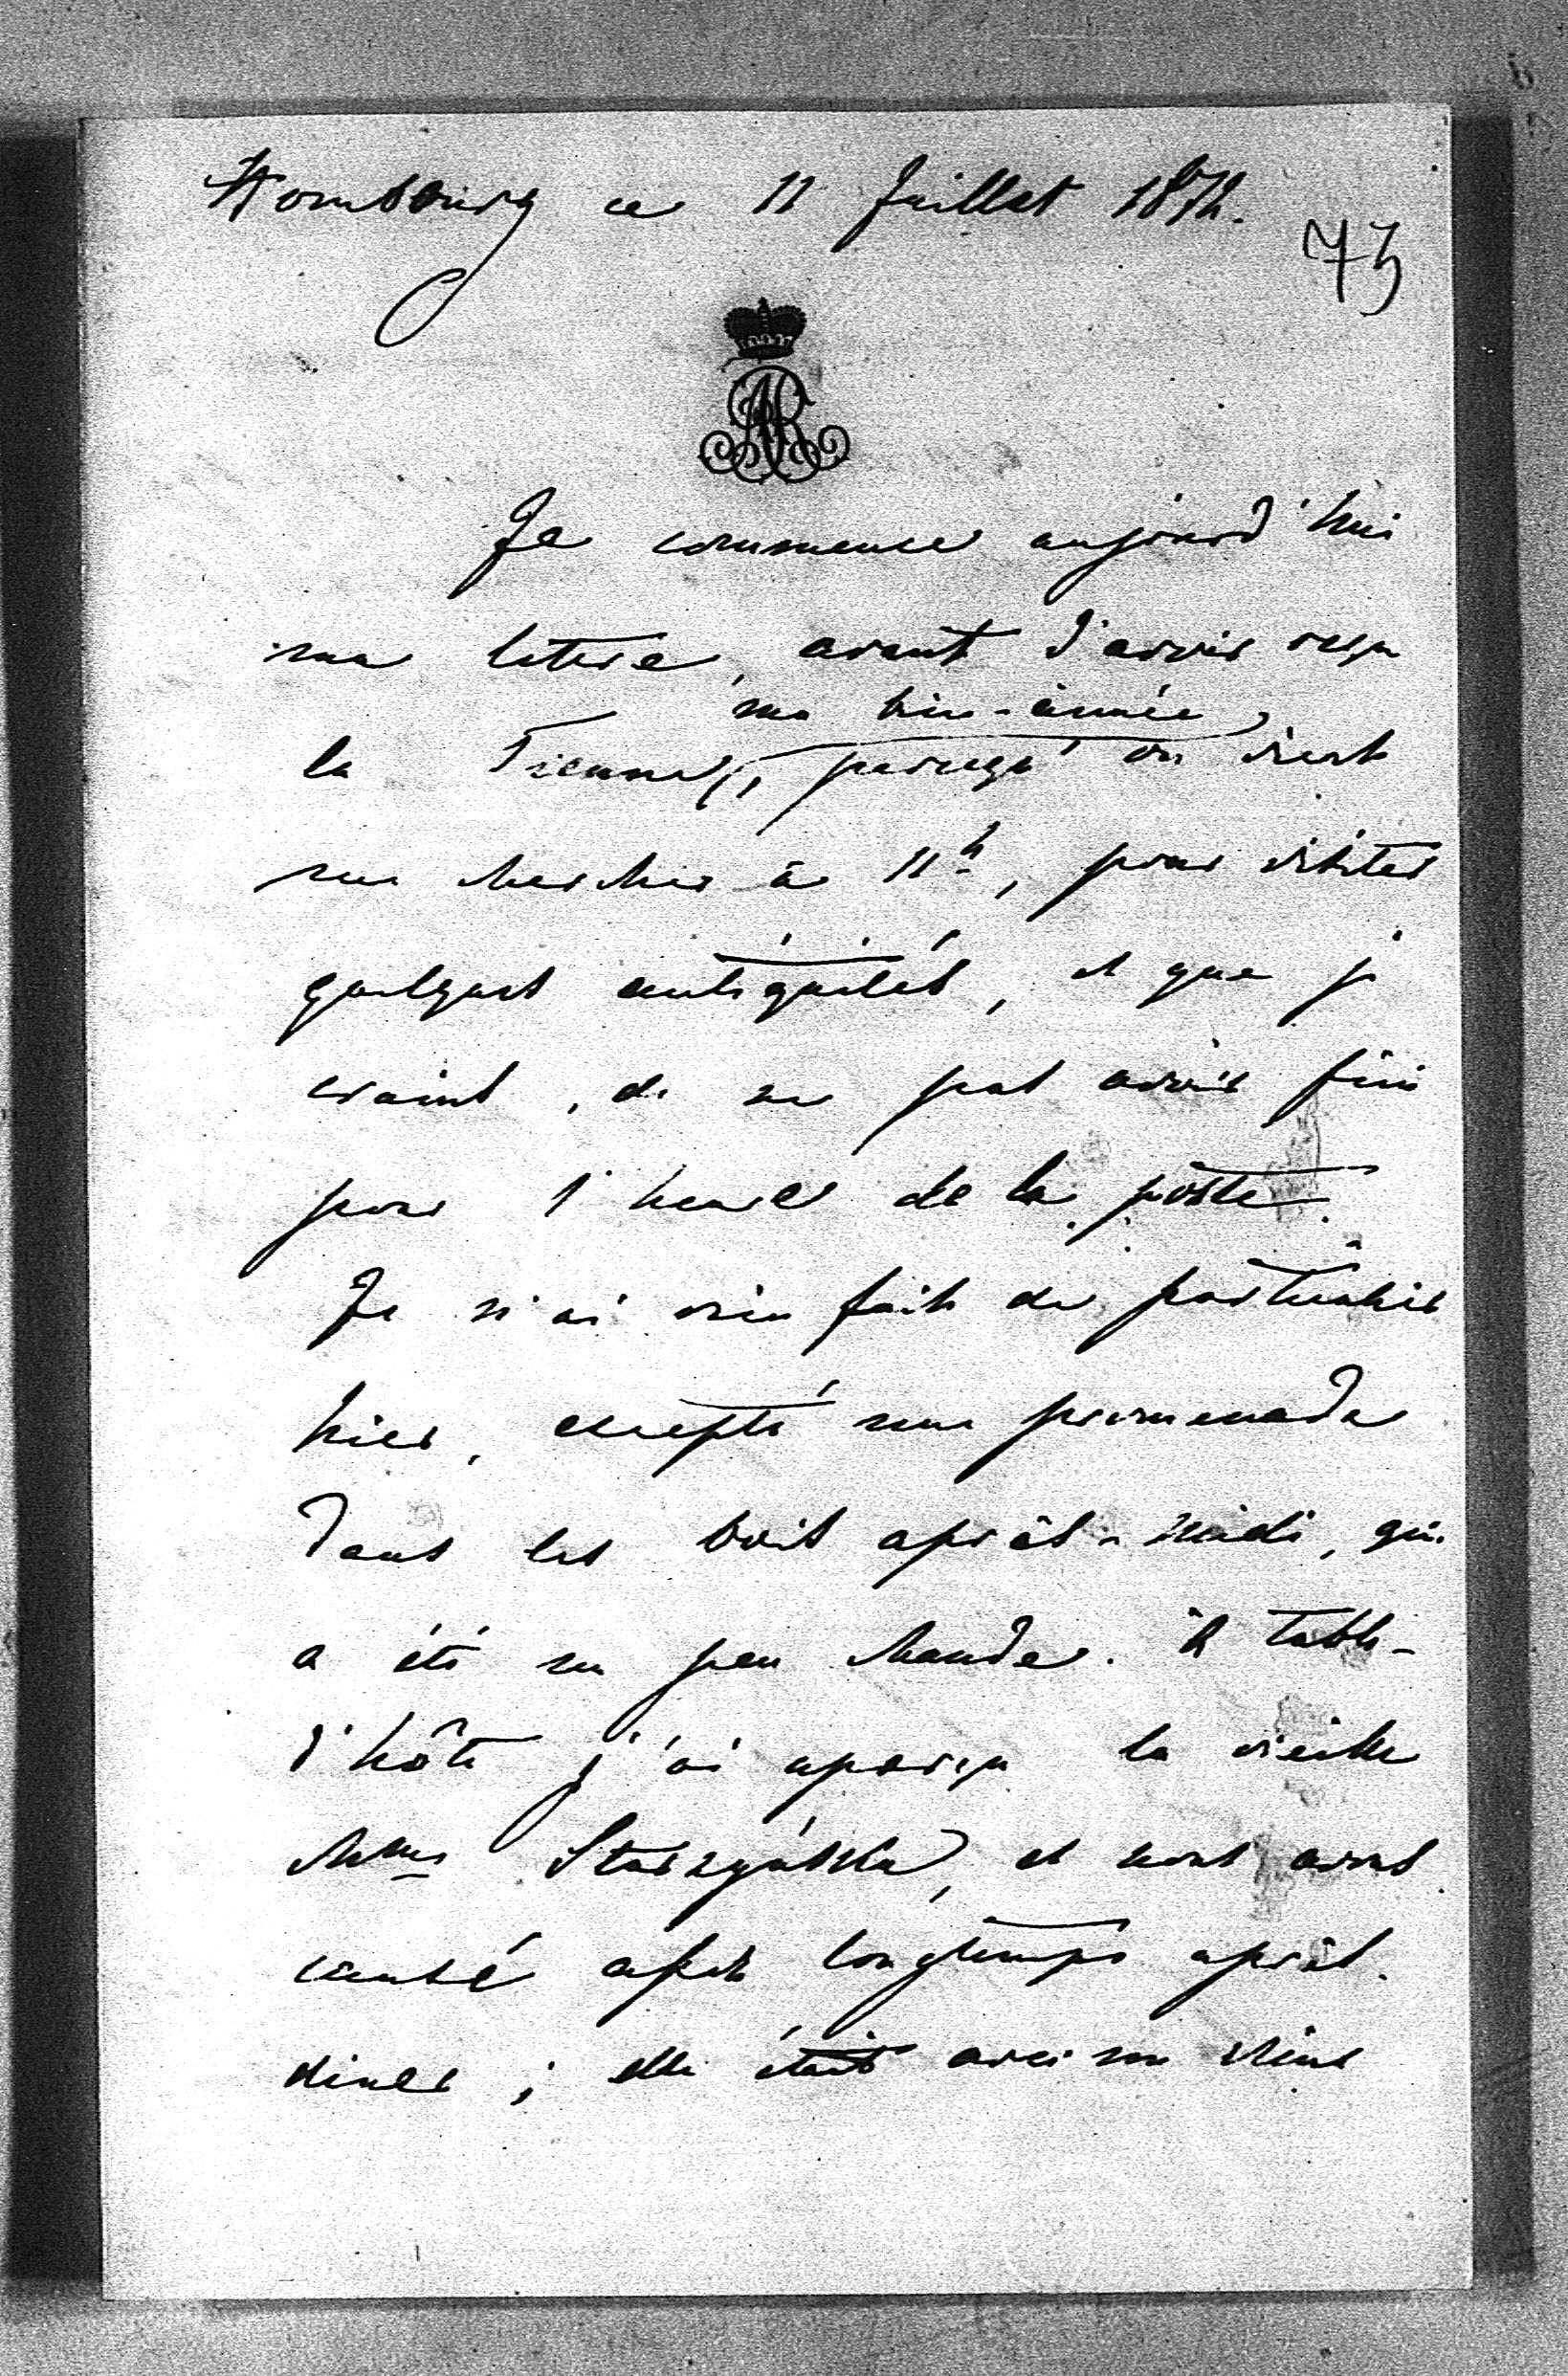 Hombourg ce 11 Juillet 1872.
73
Je commence aujourd'hui
ma lettre, avant d'avoir reçu
la Tienne, ma bien-aimée, parcequ'on vient
me chercher à 11h, pour visiter
quelques antiquités, et que je
crains, de ne pas avoir fini
pour l'heure de la poste.
Je n'ai rien fait de particulier
hier, excepté une promenade
dans les bois après-midi, qui
a été un peu chaude. A table-
d'hôte j'ai aperçu la vieille
Mme et nous avons
causé assez longtemps après
diner; elle était avec un vieux